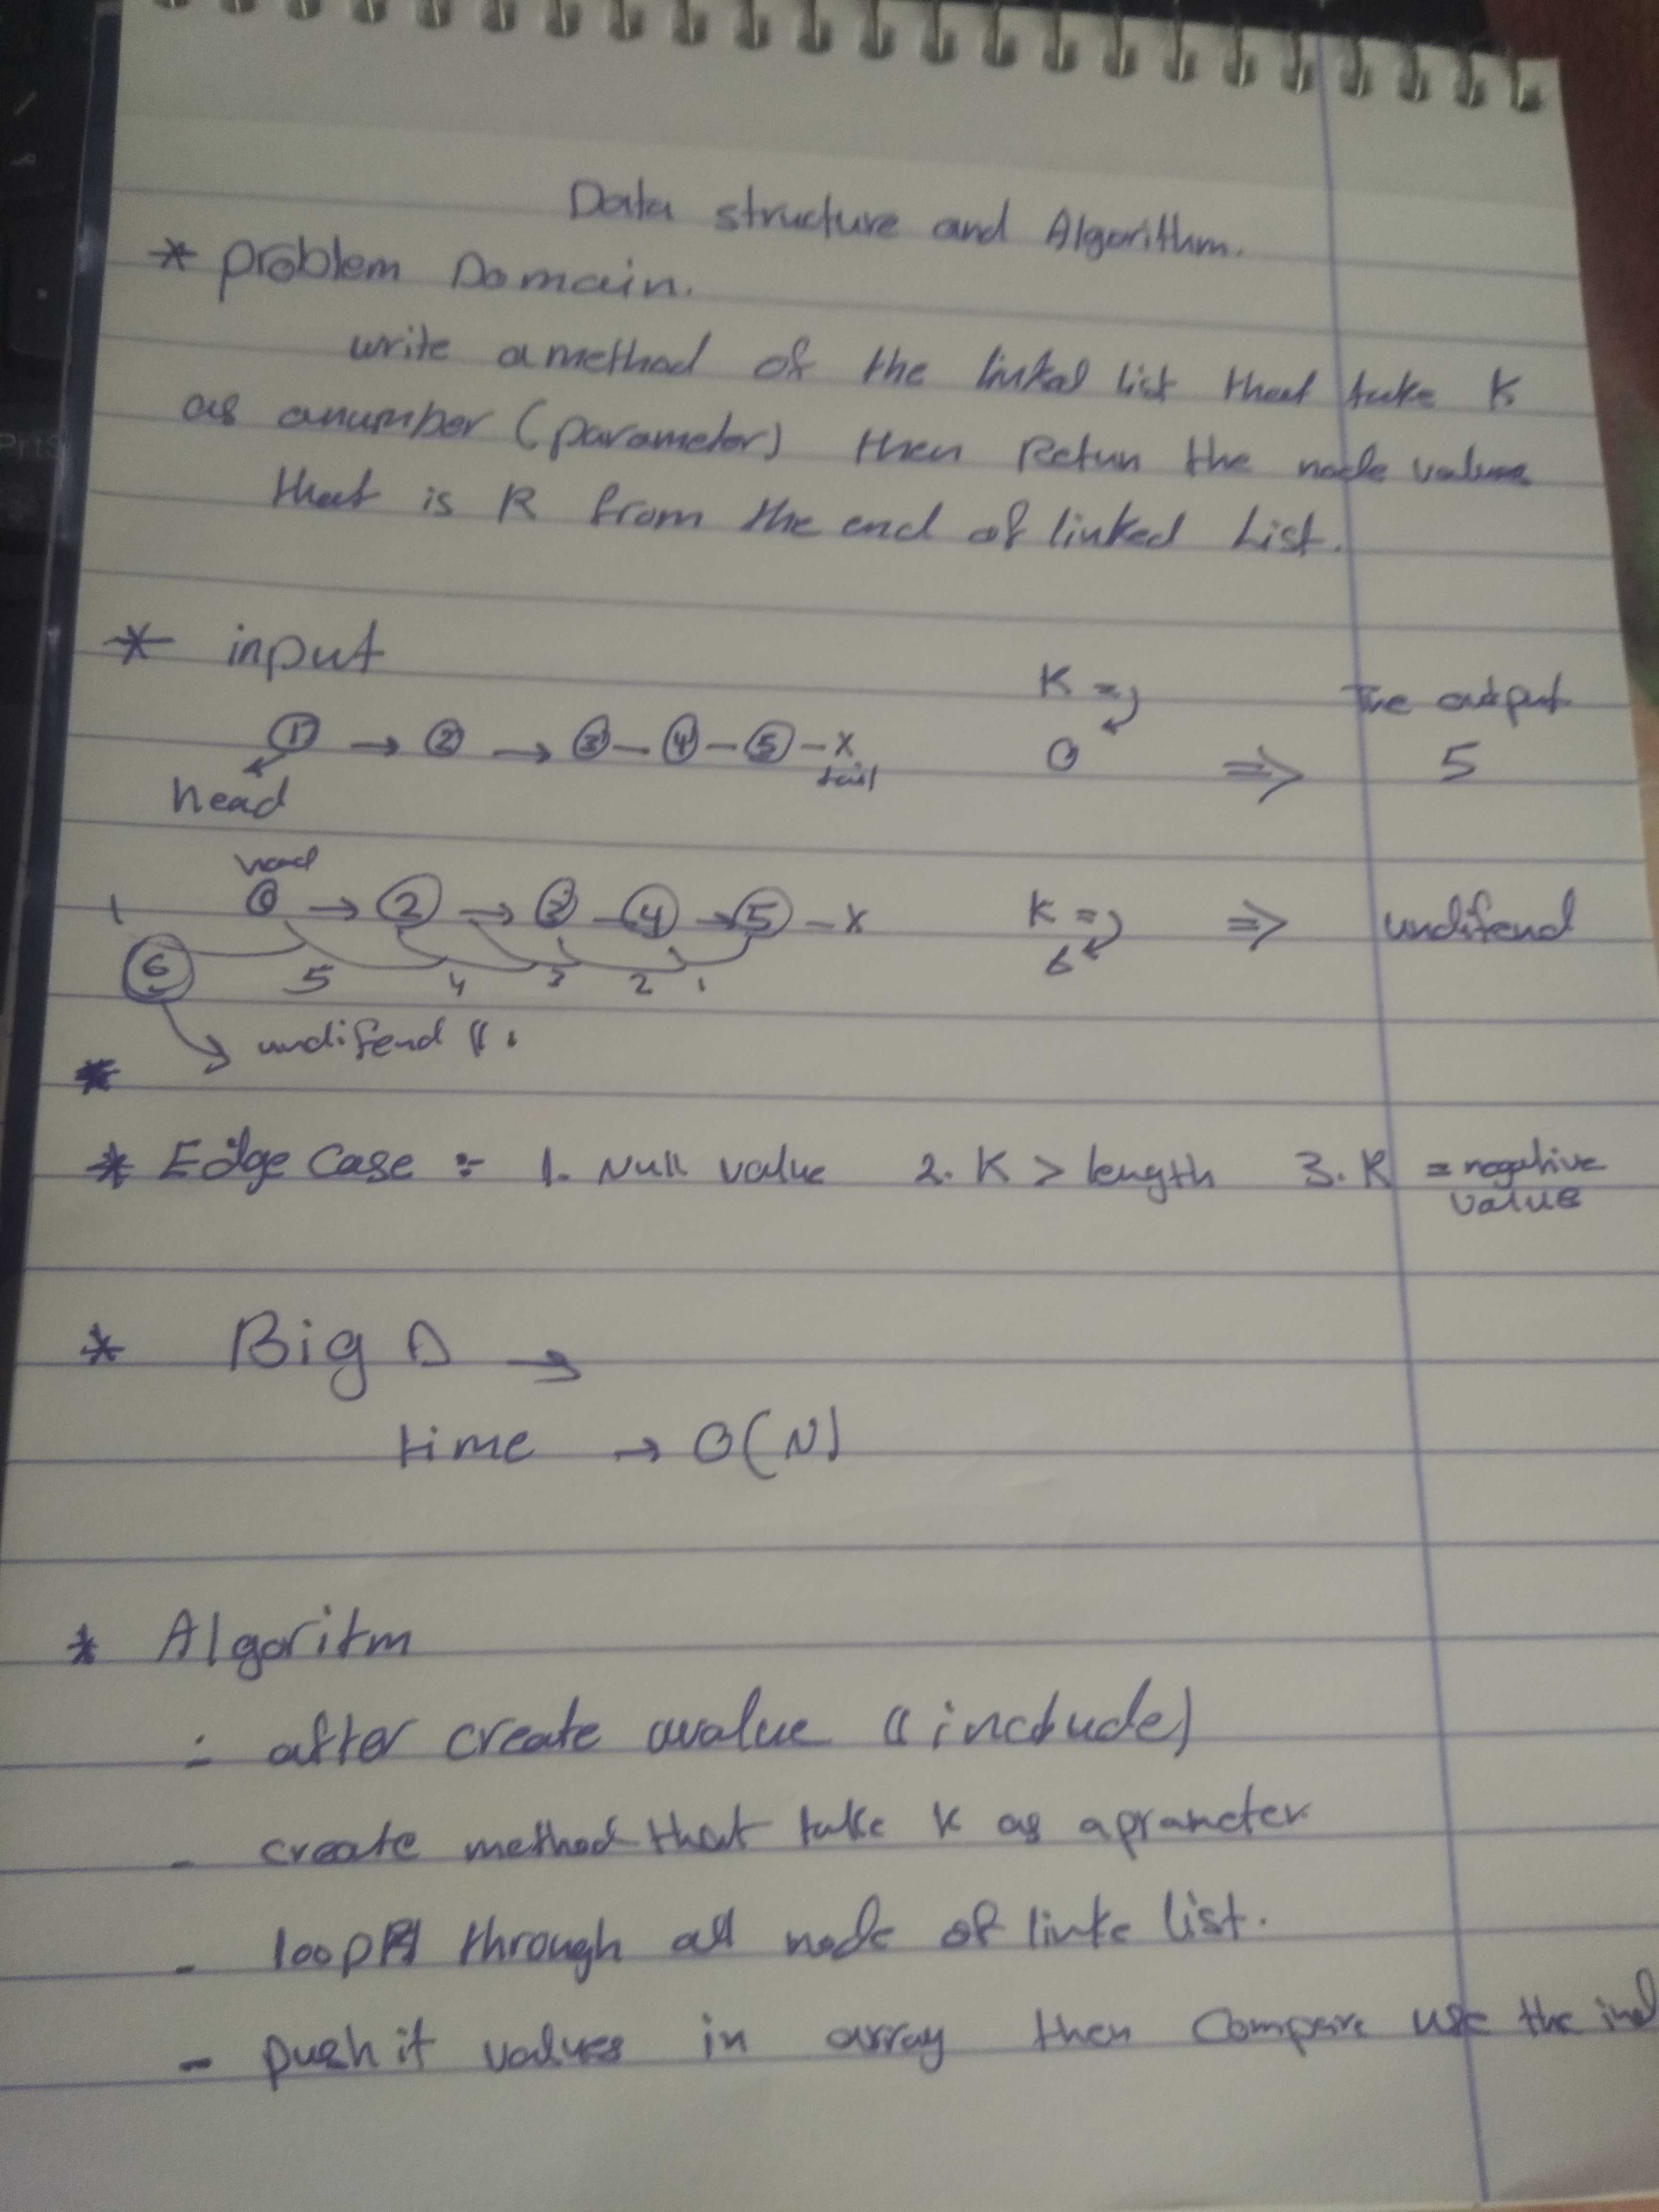 Data structure and Algorithm.
* problem Domain.
write a method of the linked list that take K
as anumber (parameter) then Retun the node value
that is K from the end of linked List.
* input
K =>
The output
1 → 2 → 3 - 4 - 5 - X
0 => 5
tail
head
head
1 → 2 → 3 - 4 → 5 - X
K => => undifend
6
6 5 4 3 2 1
undifend
*
* Edge Case :- 1. Null value 2. K > length 3. K = negative
value
* Big O →
time → O(N)
* Algoritm
- after create avalue (include)
- create method that take K as aprameter
- loop through all node of linke list.
- push it values in array then Compare use the ind